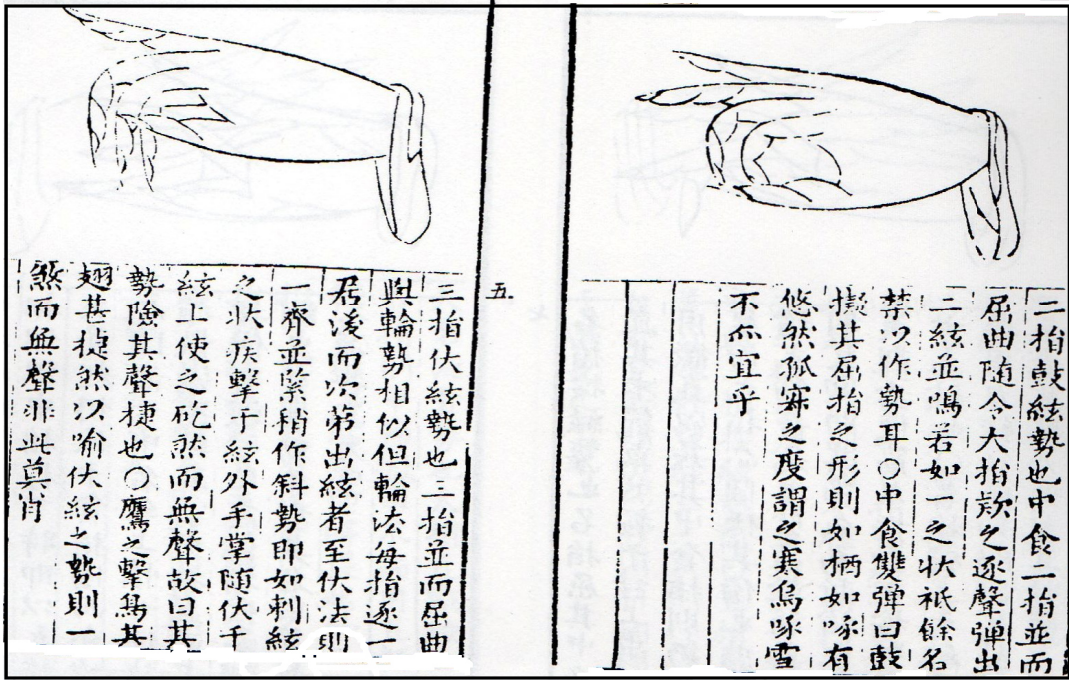 二指鼓絃勢也中食二指並而
屈曲随令大指欵之逐聲弹出
二絃並鳴若如一之状祇餘名
禁以作勢耳○中食雙弹曰鼓
擬其屈指之形則如栖如啄有
悠然孤寐之度謂之寒烏啄雪
不亦宜乎
五
三指伏絃勢也三指並而屈曲
與輪勢相似但輪法每指逐一
居後而次苐出絃者至伏法則
一齊並緊稍作斜勢即如刺絃
之状疾擊于絃外手掌随伏于
絃上使之矻然而無聲故曰其
勢險其聲捷也○鷹之擊鳥其
翅甚捷然以喻伏絃之勢則一
煞而無聲非此莫肖